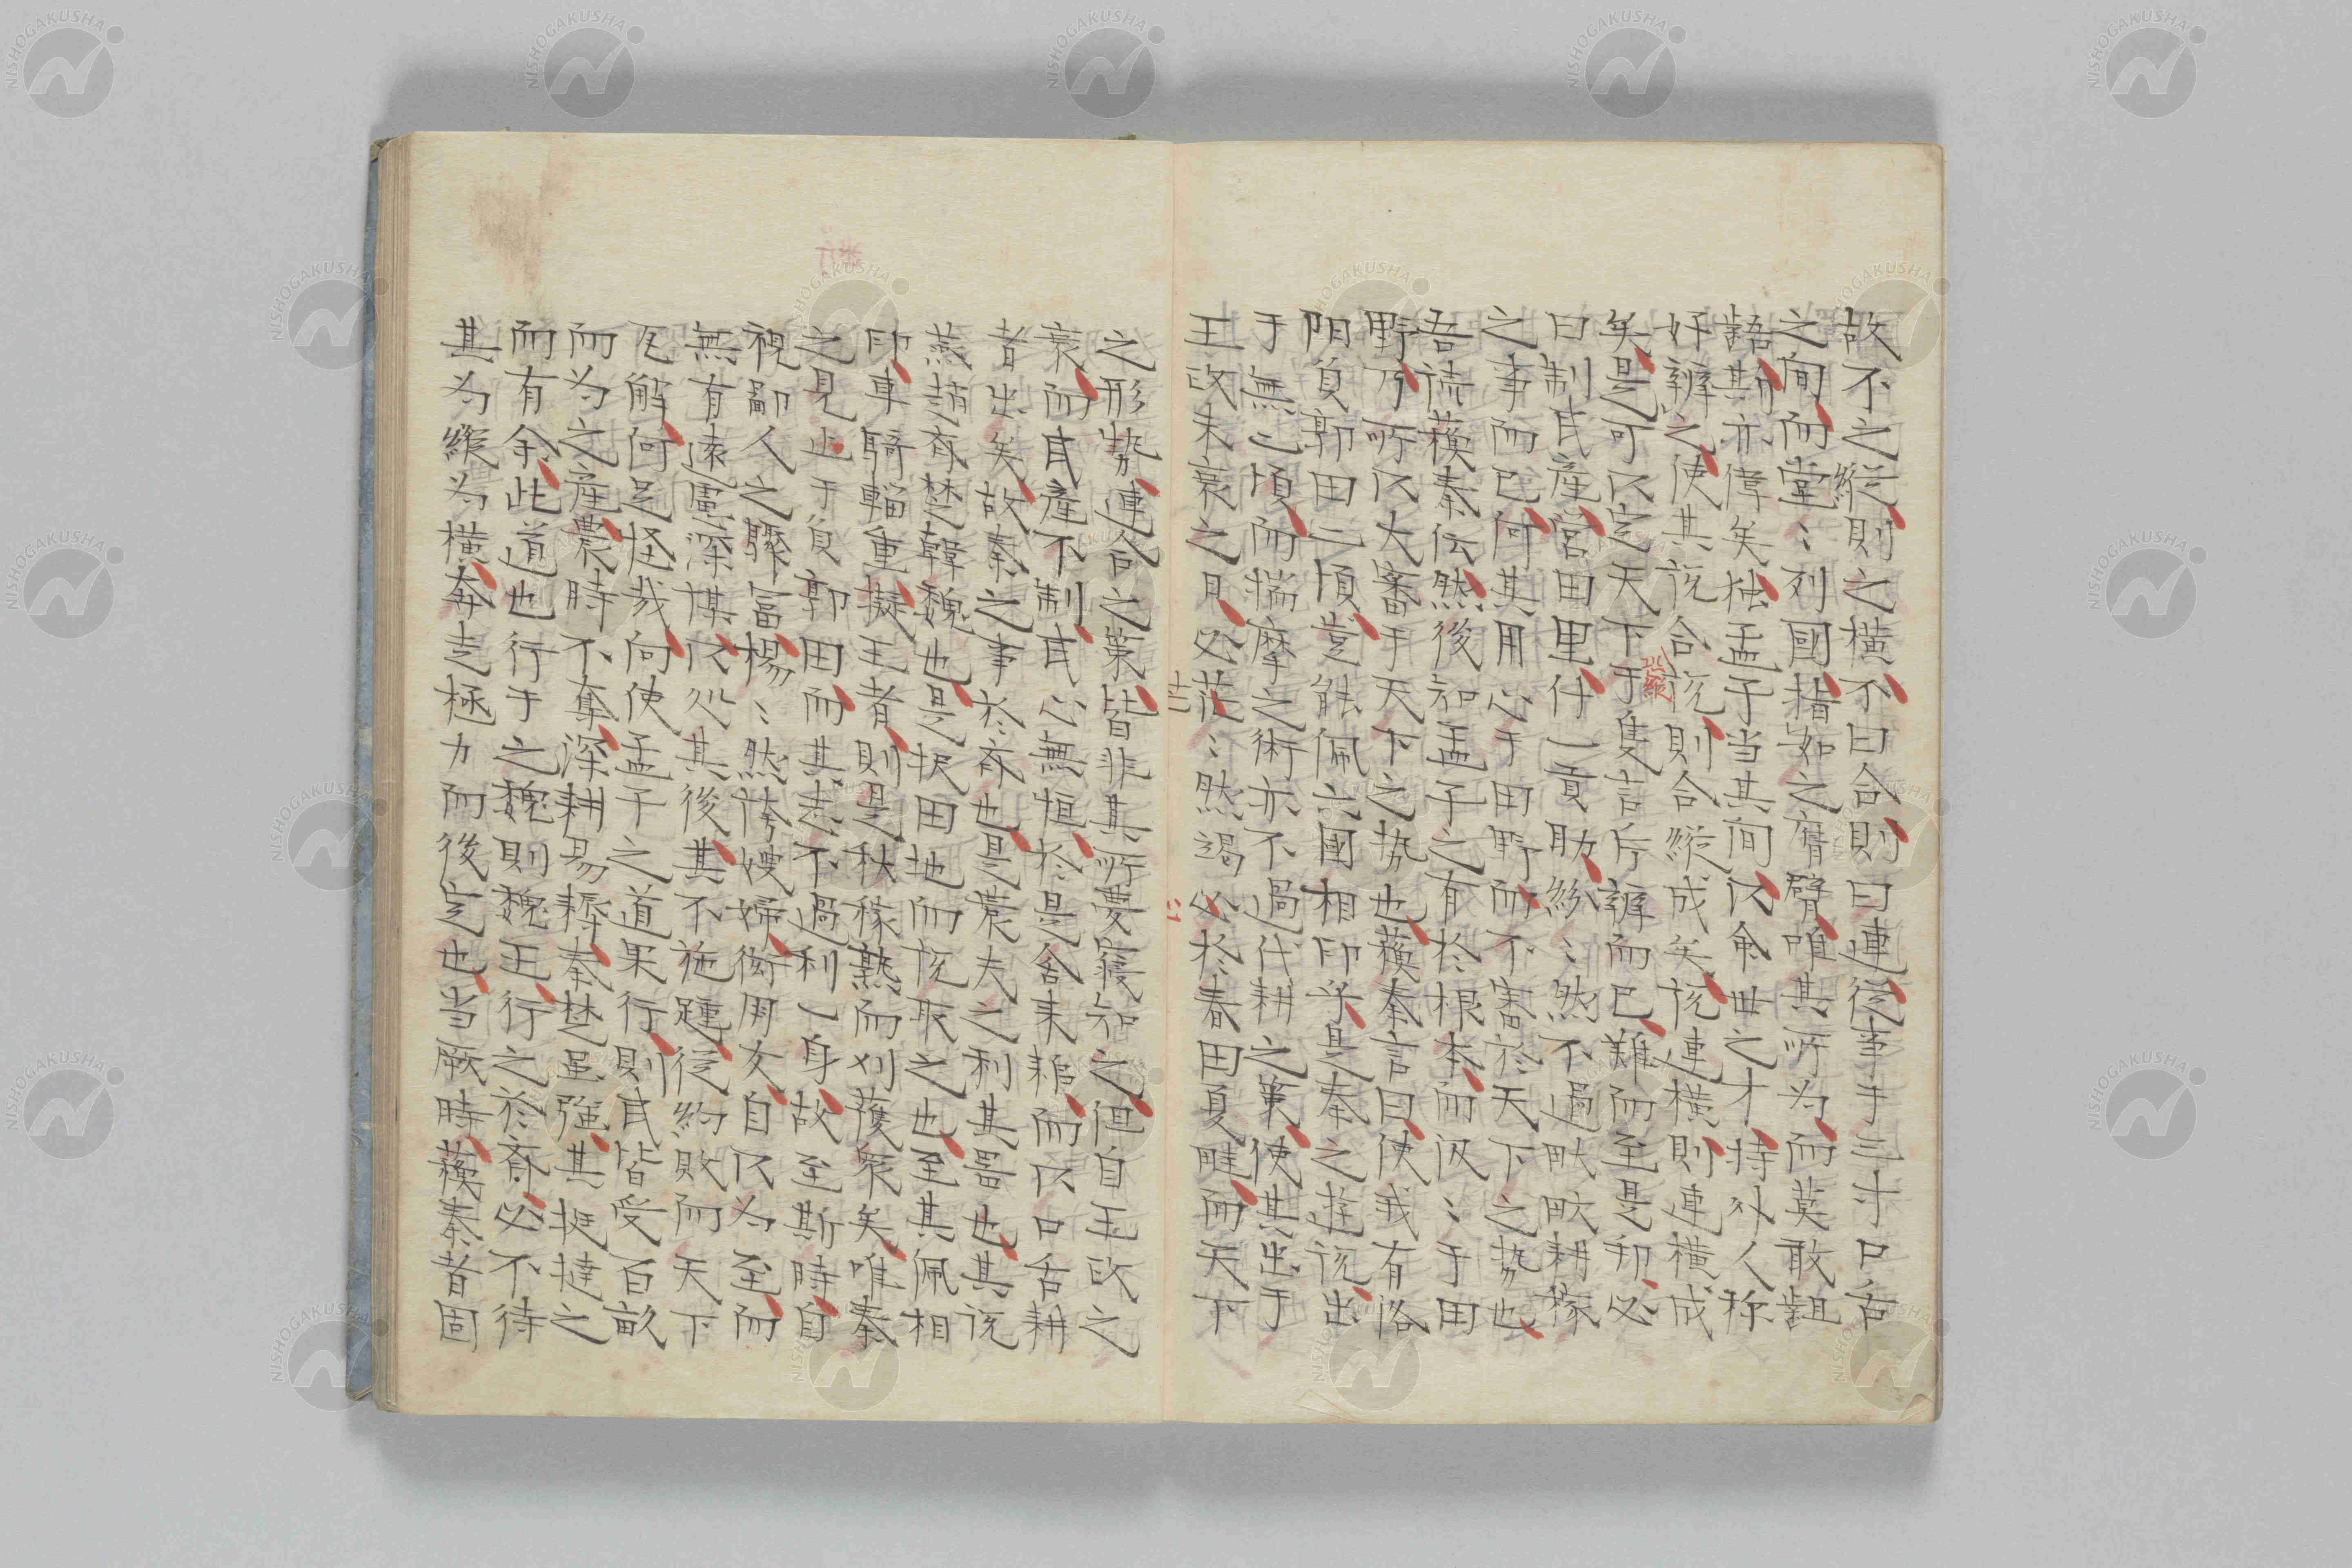 故不之縦則之横不曰合則曰連従事于三寸口舌
之間而堂〻列國指如之膺臂唯其所为而莫敢齟
齬斯亦偉矣独孟子当其间以命世之才持外人称
好辯之使其説合従則合縦成矣説連横則連横成
矣是可以定天下于隻言片辯而已難而至是却必
曰制民産宮田里什一貢助紛〻然不過畎畝耕稼
之事而已何其用心于田野而不審於天下之勢也
吾読蘓秦伝然後知孟子之有於根本而汲〻于田
野乃所以大審于天下之势也蘓秦言曰使我有洛
阳負郭田二頃豈能佩六國相印乎是秦之遊説出
于無二頃而揣摩之術亦不過代耕之策使其出于
王政未衰之日必茫〻然謁必於春田夏畦而天下
之形勢連合之策皆非其所夢寐知之但自王政之
衰而民産不制民心無恒於是舍耒耜而以口舌耕
者出矣故秦之事於斉也是農夫之利其器也其説
燕趙斉楚韓魏也是択田地而説取之也至其佩相
印車騎輜重擬王者則是秋稼熟而刈穫衆矣唯秦
之見止于負郭田而其志不過利一身故至斯時自
視鄙人之驟富楊〻然誇嫂婦衒朋友自以为至而
無有遠慮深謀以処其後其不旋踵従約敗而天下
瓦解何足怪哉向使孟子之道果行則民皆受百畝
而为之産農時不奪深耕易耨秦楚虽強其挺撻之
而有余此道也行于之魏則魏王行之於斉必不待
其为縦为横奔走極力而後定也当厥時蘓秦者固